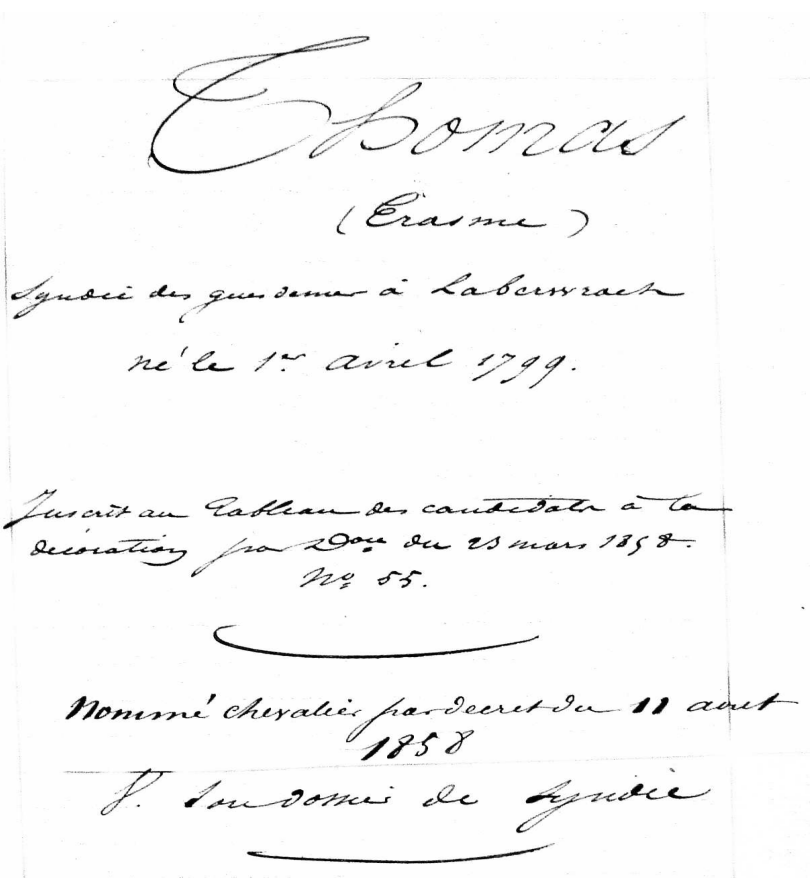 Thomas
(Erasme)
Syndic des gens de mer à Laberwrach
né le 1er avril 1799.
Inscrit au Tableau des candidats à la
décoration par Don du 23 mars 1858.
No 55.
Nommé chevalier par decret du 11 aout
1858
V. Son dossier de Syndic